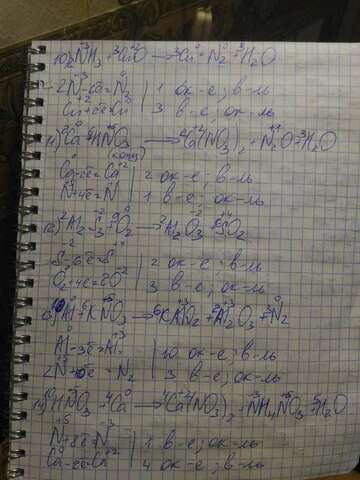 10) 2NH₃ + 3CuO → 3Cu + N₂ + 3H₂O
2N⁻³ - 6ē = N₂⁰ | 1 ок-е; в-ль
Cu⁺² + 2ē = Cu⁰ | 3 в-е, ок-ль
11) Ca⁰ + HN⁺⁵O₃ → Ca⁺²(NO₃)₂ + N₂⁺¹O + H₂O
(конц)
Ca⁰ - 2ē = Ca⁺² | 2 ок-е; в-ль
N⁺⁵ + 4ē = N⁺¹ | 1 в-е, ок-ль
12) 2Al₂S₃⁻² + 9O₂⁰ → 2Al₂O₃⁻² + 6S⁺⁴O₂
S⁻² - 6ē = S⁺⁴ | 2 ок-е; в-ль
O₂⁰ + 4ē = 2O⁻² | 3 в-е; ок-ль
13) 10Al⁰ + 6KN⁺⁵O₃ → 6KAl⁺³O₂ + 2Al₂⁺³O₃ + 3N₂⁰
Al⁰ - 3ē = Al⁺³ | 10 ок-е; в-ль
2N⁺⁵ + 10ē = N₂⁰ | 3 в-е; ок-ль
14) 10HN⁺⁵O₃ + 4Ca⁰ → 4Ca⁺²(NO₃)₂ + N⁻³H₄NO₃ + 3H₂O
N⁺⁵ + 8ē = N⁻³ | 1 в-е; ок-ль
Ca⁰ - 2ē = Ca⁺² | 4 ок-е; в-ль